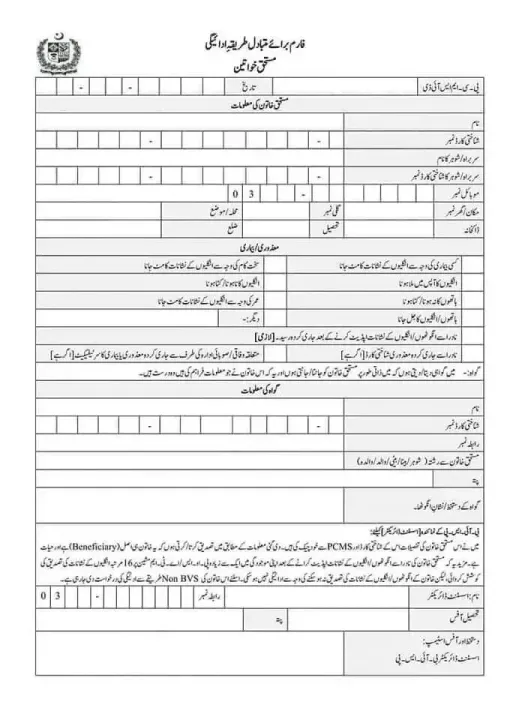 فارم برائے متبادل طریقہ ادائیگی
مستحق خواتین
پی۔سی۔ایم ایس آئی ڈی
تاریخ - -
مستحق خاتون کی معلومات
نام
شناختی کارڈ نمبر - -
سربراہ/شوہر کا نام
سربراہ/شوہر کا شناختی کارڈ نمبر - -
موبائل نمبر 0 3 -
مکان/گھر نمبر گلی نمبر محلہ/موضع
ڈاکخانہ تحصیل ضلع
معذوری/بیماری
کسی بیماری کی وجہ سے انگلیوں کے نشانات کا مٹ جانا سخت کام کی وجہ سے انگلیوں کے نشانات کا مٹ جانا
انگلیوں کا آپس میں ملا ہونا انگلیوں کا نا ہونا/کٹا ہونا
ہاتھوں کا نہ ہونا/کٹا ہونا عمر کی وجہ سے انگلیوں کے نشانات کا مٹ جانا
ہاتھوں/انگلیوں کا جل جانا دیگر:-
نادرا سے انگوٹھوں/انگلیوں کے نشانات اپڈیٹ کرنے کے بعد جاری کردہ رسید۔ [لازمی]
نادرا سے جاری کردہ معذوری شناختی کارڈ [اگر ہے] متعلقہ وفاقی/صوبائی ادارہ کی طرف سے جاری کردہ معذوری یا بیماری کا سرٹیفکیٹ [اگر ہے]
گواہ:- میں گواہی دیتا/دیتی ہوں کہ میں ذاتی طور پر مستحق خاتون کو جانتا/جانتی ہوں اور یہ کہ اس خاتون نے جو معلومات فراہم کی ہیں وہ درست ہیں۔
گواہ کی معلومات
نام
شناختی کارڈ نمبر - -
رابطہ نمبر
مستحق خاتون سے رشتہ (شوہر/بیٹا/بیٹی/والد/والدہ)
پتہ
گواہ کے دستخط/نشان انگوٹھا۔
بی۔آئی۔ایس۔پی کے نمائندہ [اسسٹنٹ ڈائریکٹر] کیلئے:
میں نے اس مستحق خاتون کی تفصیلات اس کے شناختی کارڈ اور PCMS سے خود چیک کی ہیں۔ دی گئی معلومات کے مطابق میں تصدیق کرتا/کرتی ہوں کہ یہ خاتون ہی اصل (Beneficiary) ہے اور حیات
ہے۔ مزید یہ کہ مستحق خاتون کی نادرا سے انگوٹھوں/انگلیوں کے نشانات اپڈیٹ کرنے کے بعد اپنی موجودگی میں ایک سے زیادہ پی۔او۔ایس/اے۔ٹی۔ایم مشین پر 16 مرتبہ انگلیوں کے نشانات کی تصدیق کی
کوشش کروائی، لیکن خاتون کے انگوٹھوں/انگلیوں کے نشانات کی تصدیق نہ ہو سکنے کی وجہ سے ادائیگی نہیں ہو سکی۔ اسلئے اس خاتون کی Non BVS طریقے سے ادائیگی کی درخواست دی جا رہی ہے۔
نام: اسسٹنٹ ڈائریکٹر رابطہ نمبر 0 3 -
تحصیل آفس پتہ
دستخط اور آفس اسٹیمپ:
اسسٹنٹ ڈائریکٹر بی۔آئی۔ایس۔پی